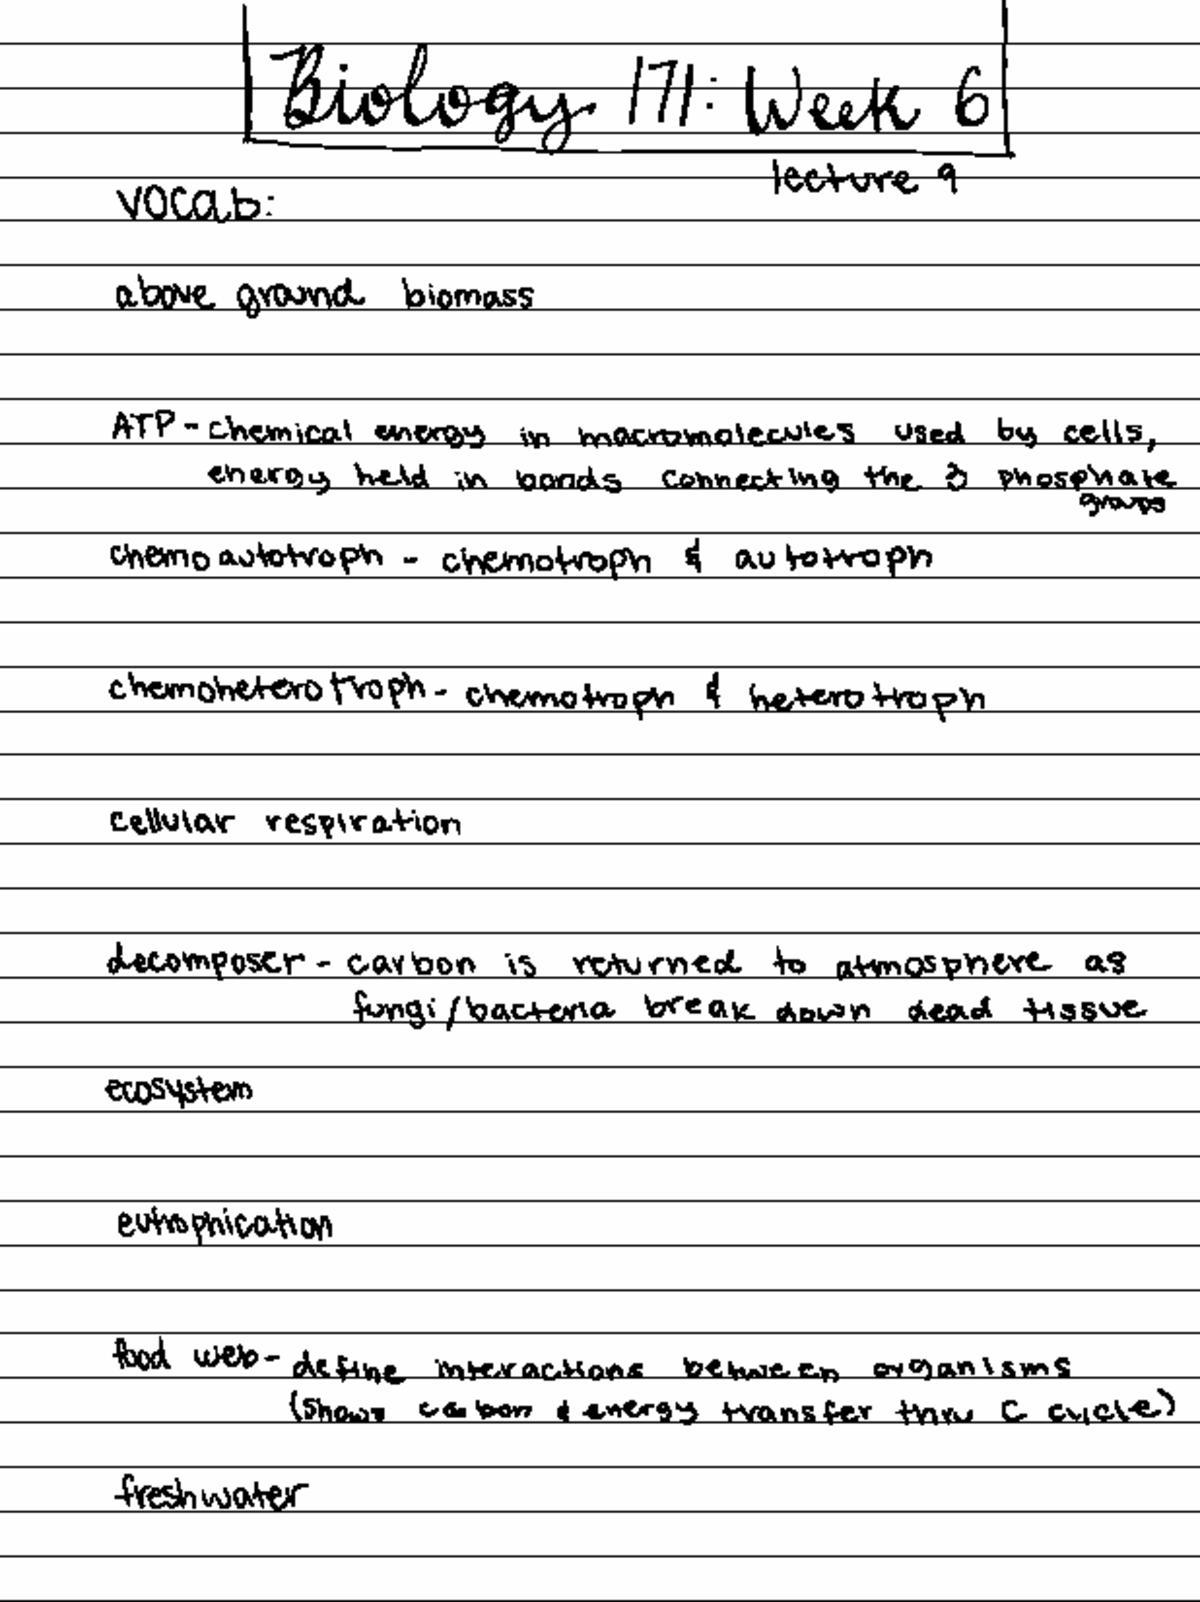 Biology 171: Week 6
lecture 9
vocab:
above ground biomass
ATP - chemical energy in macromolecules used by cells,
energy held in bonds connecting the 3 phosphate
groups
chemoautotroph - chemotroph & autotroph
chemoheterotroph - chemotroph & heterotroph
cellular respiration
decomposer - carbon is returned to atmosphere as
fungi/bacteria break down dead tissue
ecosystem
eutrophication
food web - define interactions between organisms
(shows carbon & energy transfer thru C cycle)
freshwater